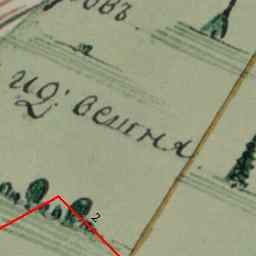 овъ
ид: вешня
2